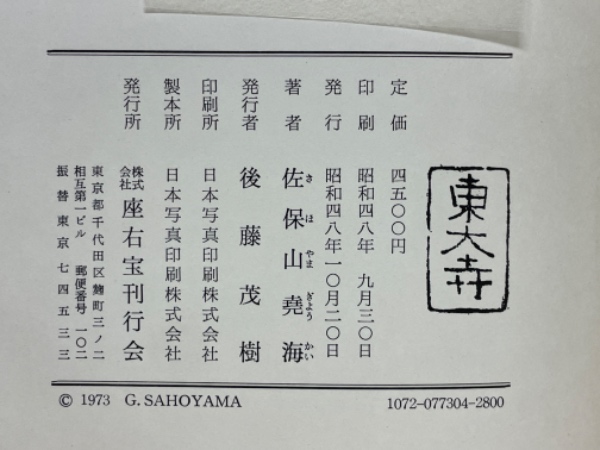 東大寺
定価 四五〇〇円
印刷 昭和四八年 九月三〇日
発行 昭和四八年一〇月二〇日
著者 佐保山堯海
さ ほ やま ぎょう かい
発行者 後藤茂樹
印刷所 日本写真印刷株式会社
製本所 日本写真印刷株式会社
発行所 株式会社 座右宝刊行会
東京都千代田区麴町三ノ二
相互第一ビル 郵便番号 一〇二
振替東京七四五三三
© 1973 G. SAHOYAMA
1072-077304-2800